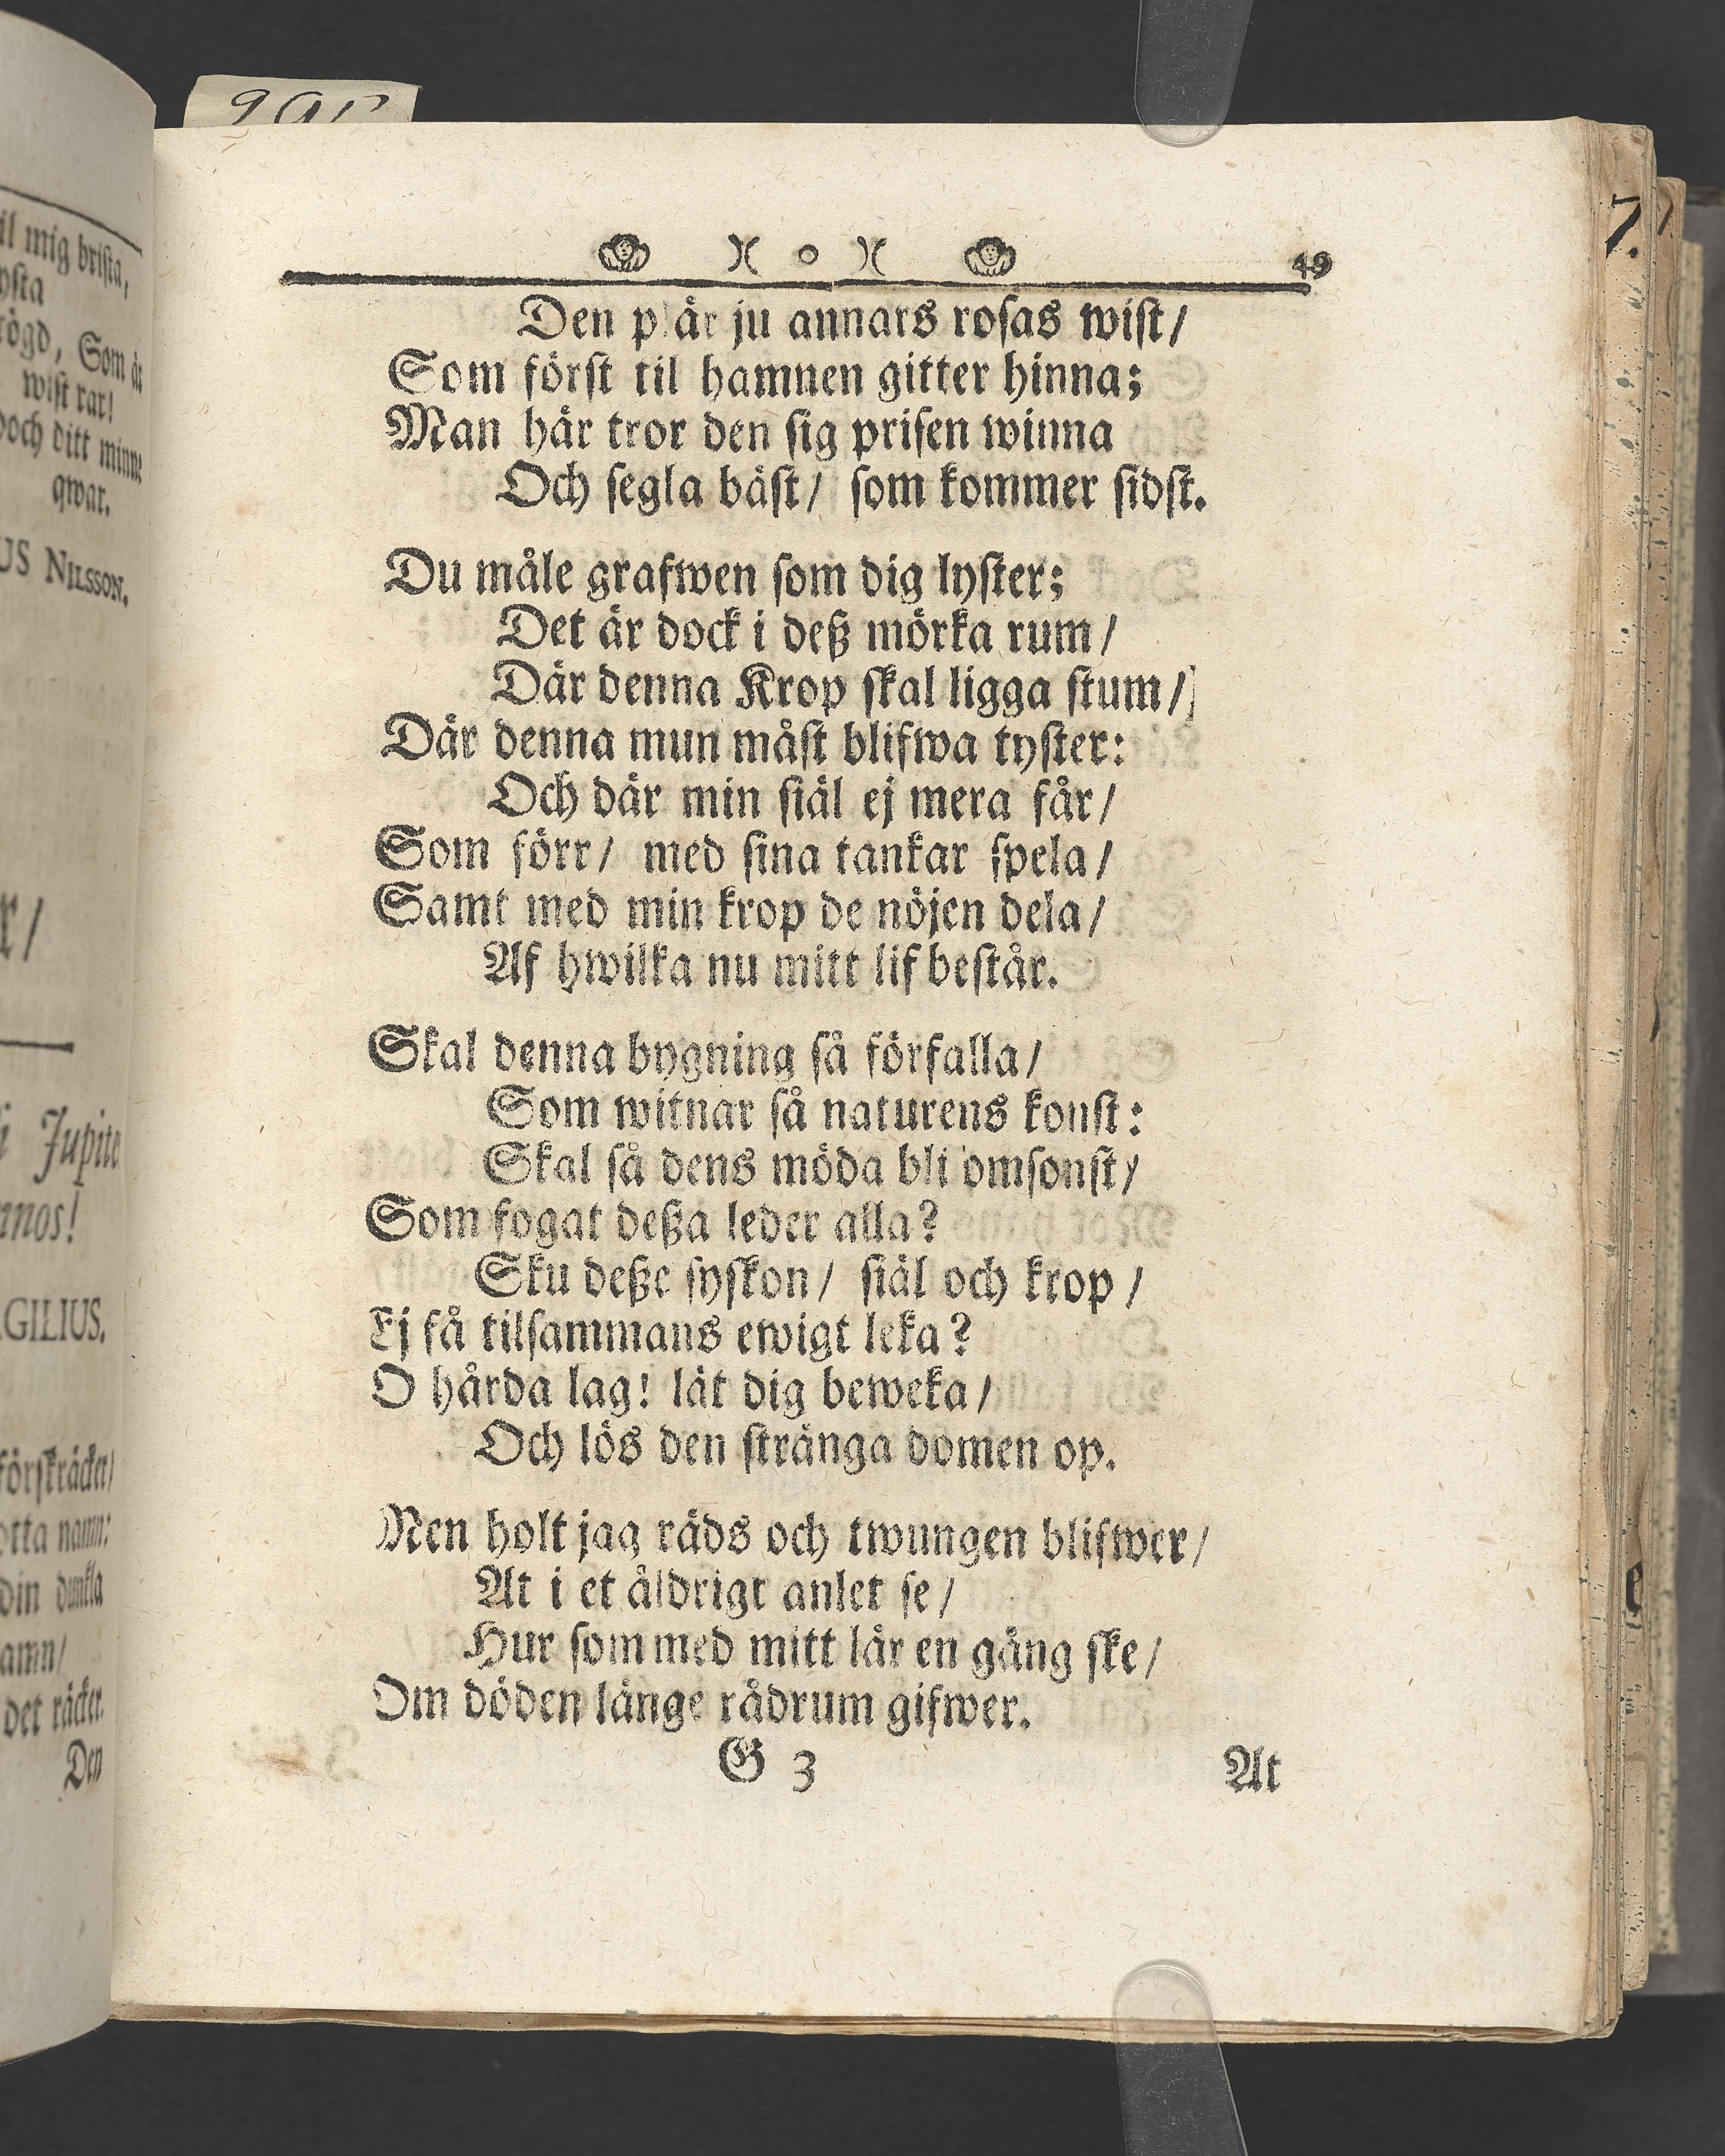 il mig brista,
ysta
rögd, Som är
wist rar!
Doch ditt minne
qwar.
US NILSSON.
r/
i Jupite
nnos!
GILIUS.
förskräcker/
otta namn:
din dunkla
amn/
det räcker.
Den
49
Den plär ju annars rosas wist/
Som först til hamnen gitter hinna;
Man här tror den sig prisen winna
Och segla bäst/ som kommer sidst.
Du måle grafwen som dig lyster;
Det är dock i deß mörka rum/
Där denna Krop skal ligga stum/
Där denna mun måst blifwa tyster:
Och där min siäl ej mera får/
Som förr/ med sina tankar spela/
Samt med min krop de nöjen dela/
Af hwilka nu mitt lif består.
Skal denna bygning så förfalla/
Som witnar så naturens konst:
Skal så dens möda bli omsonst/
Som fogat deßa leder alla?
Sku deße syskon/ siäl och krop/
Ej få tilsammans ewigt leka?
O hårda lag! låt dig beweka/
Och lös den stränga domen op.
Men holt jag räds och twungen blifwer/
At i et åldrigt anlet se/
Hur som med mitt lär en gång ske/
Om döden länge rådrum gifwer.
G 3 At
7.